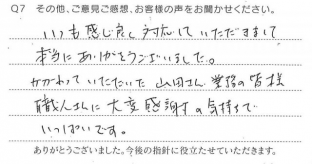 Q7 その他、ご意見ご感想、お客様の声をお聞かせください。
いつも感じ良く対応していただきまして
本当にありがとうございました。
かかわっていただいた山田さん、業務の皆様
職人さんに大変感謝の気持ちで
いっぱいです。
ありがとうございました。今後の指針に役立たせていただきます。